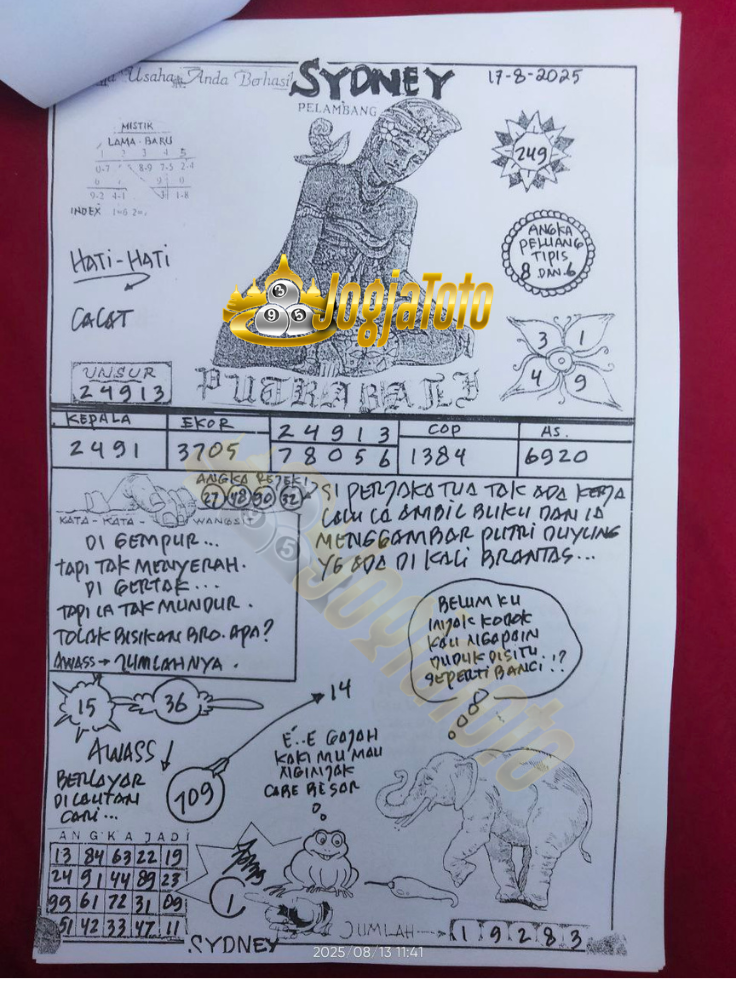 Usaha Anda Berhasil
SYDNEY
17-8-2025
PELAMBANG
MISTIK
LAMA - BARU
1 2 3 4 5
0-7 8-9 7-5 2-4
9-2 4-1 1-8
INDEX
249
ANGKA
PELUANG
TIPIS
8 DAN 6
HATI-HATI
CACAT
3 1
4 9
UNSUR
24913
JogjaToto
PUTRA BALI
KEPALA EKOR 24913 COP AS.
2491 3705 78056 1384 6920
ANGKA REJEKI?
27 48 90 32
KATA - KATA - WANGSIT
DI GEMPUR...
TAPI TAK MENYERAH.
DI GERTAK...
TAPI IA TAK MUNDUR.
TOLAK BISIKAN BRO. APA?
AWASS → JUMLAHNYA.
SI PERJAKA TUA TAK ADA KERJA
LALU IA AMBIL BUKU DAN IA
MENGGAMBAR PUTRI DUYUNG
YG ADA DI KALI BRANTAS...
BELUM KU
INJAK KODOK
KAU NGAPAIN
DUDUK DISITU..
SEPERTI BANCI..!?
15 36
14
AWASS
109
BERLAYAR
DI LAUTAN
CARI...
E..E GAJAH
KAKI MU MAU
NGINJAK
CABE BESAR
ANGKA JADI
13 84 63 22 19
24 91 44 89 23
99 61 72 31 09
51 42 33 47 11
1
JUMLAH → 19283
SYDNEY
2025/08/13 11:41
JogjaToto.to